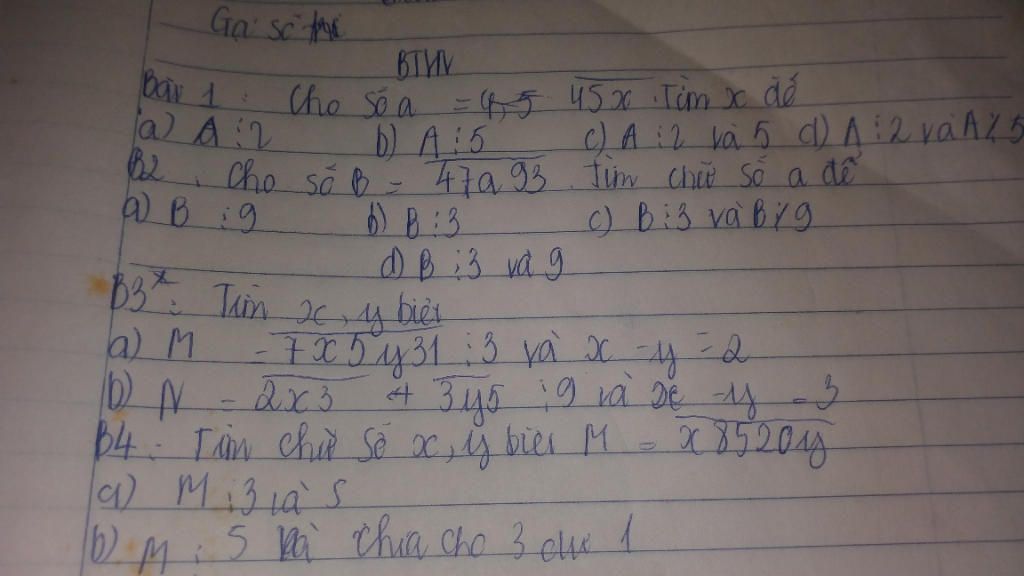 Gọi số
BTVN
Bài 1: Cho số a = 4,5 45x. Tìm x để
a) A ⋮ 2 b) A ⋮ 5 c) A ⋮ 2 và 5 d) A ⋮ 2 và A ⋮̸ 5
B2. Cho số B = 47a93. Tìm chữ số a để
a) B ⋮ 9 b) B ⋮ 3 c) B ⋮ 3 và B ⋮̸ 9
d) B ⋮ 3 và 9
B3*: Tìm x, y biết
a) M = 7x5y31 ⋮ 3 và x - y = 2
b) N = 2x3 + 3y5 ⋮ 9 và x - y = 3
B4: Tìm chữ số x, y biết M = x8520y
a) M ⋮ 3 và 5
b) M ⋮ 5 và chia cho 3 dư 1